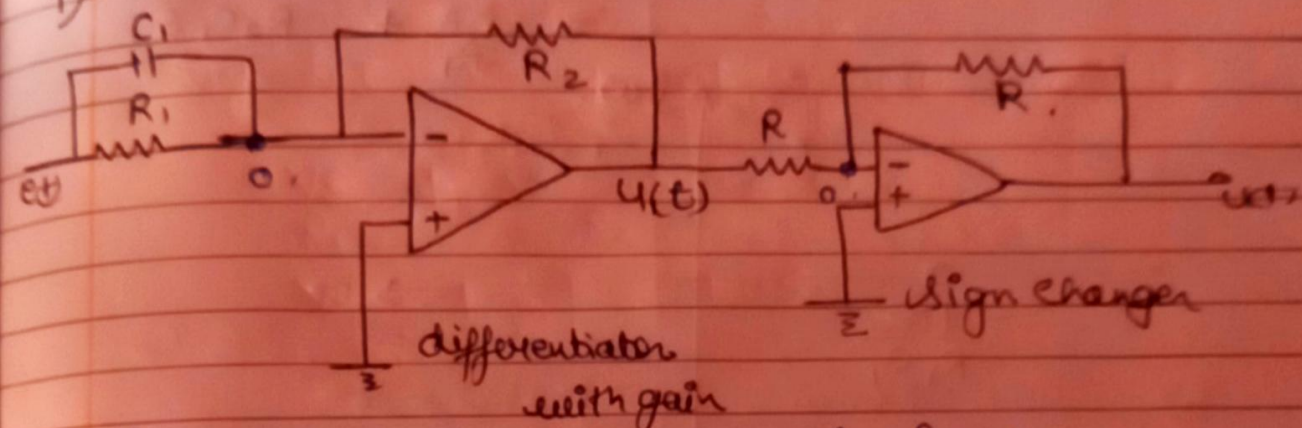 C1
R1
e(t)
0
R2
-
+
u(t)
R
0
R
-
+
sign changer
differentiator
with gain